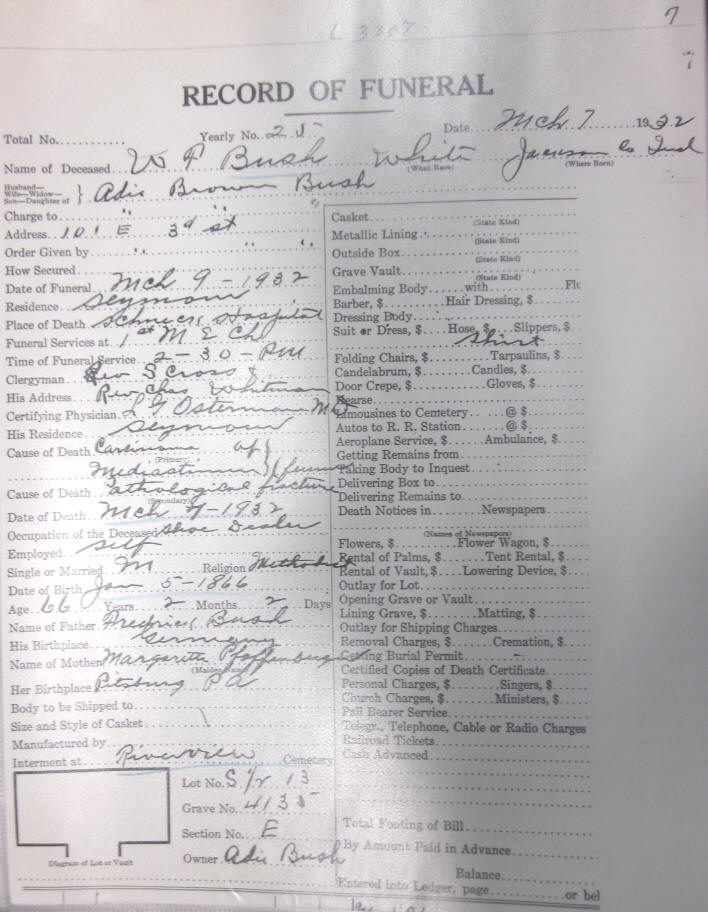 7
L 3307
7
RECORD OF FUNERAL
Total No........... Yearly No. 25 Date Mch 7 1932
Name of Deceased W F Bush White (What Race) Jackson Co Ind (Where Born)
Husband— Wife—Widow— Son—Daughter of } Adie Brown Bush
Charge to " "
Address 101 E 3rd st
Order Given by " " "
How Secured
Date of Funeral Mch 9 - 1932
Residence Seymour
Place of Death Schneck Hospital
Funeral Services at 1st M E Ch
Time of Funeral Service 2 - 30 - PM
Clergyman Rev S Cross &
His Address Rev Chas Whitman
Certifying Physician L G Osterman Md
His Residence Seymour
Cause of Death Carcinoma of
(Primary)
Mediastinum
Cause of Death Pathological fracture
(Secondary)
Date of Death Mch 7 - 1932
Occupation of the Deceased Shoe Dealer
Employed self
Single or Married M Religion Methodist
Date of Birth Jan 5 - 1866
Age 66 Years 2 Months 2 Days
Name of Father Fredrick Bush
His Birthplace Germany
Name of Mother Margaretta Pfaffenberger
(Maiden Name)
Her Birthplace Pitsburg PA
Body to be Shipped to
Size and Style of Casket
Manufactured by
Interment at Riverview Cemetery
Lot No. S 1/2 13
Grave No. 4135
Section No. E
Owner Adie Bush
Diagram of Lot or Vault
Casket
(State Kind)
Metallic Lining
(State Kind)
Outside Box
(State Kind)
Grave Vault
(State Kind)
Embalming Body with Flu
Barber, $ Hair Dressing, $
Dressing Body
Suit or Dress, $ Hose, $ Slippers, $
Shirt
Folding Chairs, $ Tarpaulins, $
Candelabrum, $ Candles, $
Door Crepe, $ Gloves, $
Hearse
Limousines to Cemetery @ $
Autos to R. R. Station @ $
Aeroplane Service, $ Ambulance, $
Getting Remains from
Taking Body to Inquest
Delivering Box to
Delivering Remains to
Death Notices in Newspapers
(Names of Newspapers)
Flowers, $ Flower Wagon, $
Rental of Palms, $ Tent Rental, $
Rental of Vault, $ Lowering Device, $
Outlay for Lot
Opening Grave or Vault
Lining Grave, $ Matting, $
Outlay for Shipping Charges
Removal Charges, $ Cremation, $
Getting Burial Permit
Certified Copies of Death Certificate
Personal Charges, $ Singers, $
Church Charges, $ Ministers, $
Pall Bearer Service
Telegr., Telephone, Cable or Radio Charges
Railroad Tickets
Cash Advanced
Total Footing of Bill
By Amount Paid in Advance
Balance
Entered into Ledger, page or bel